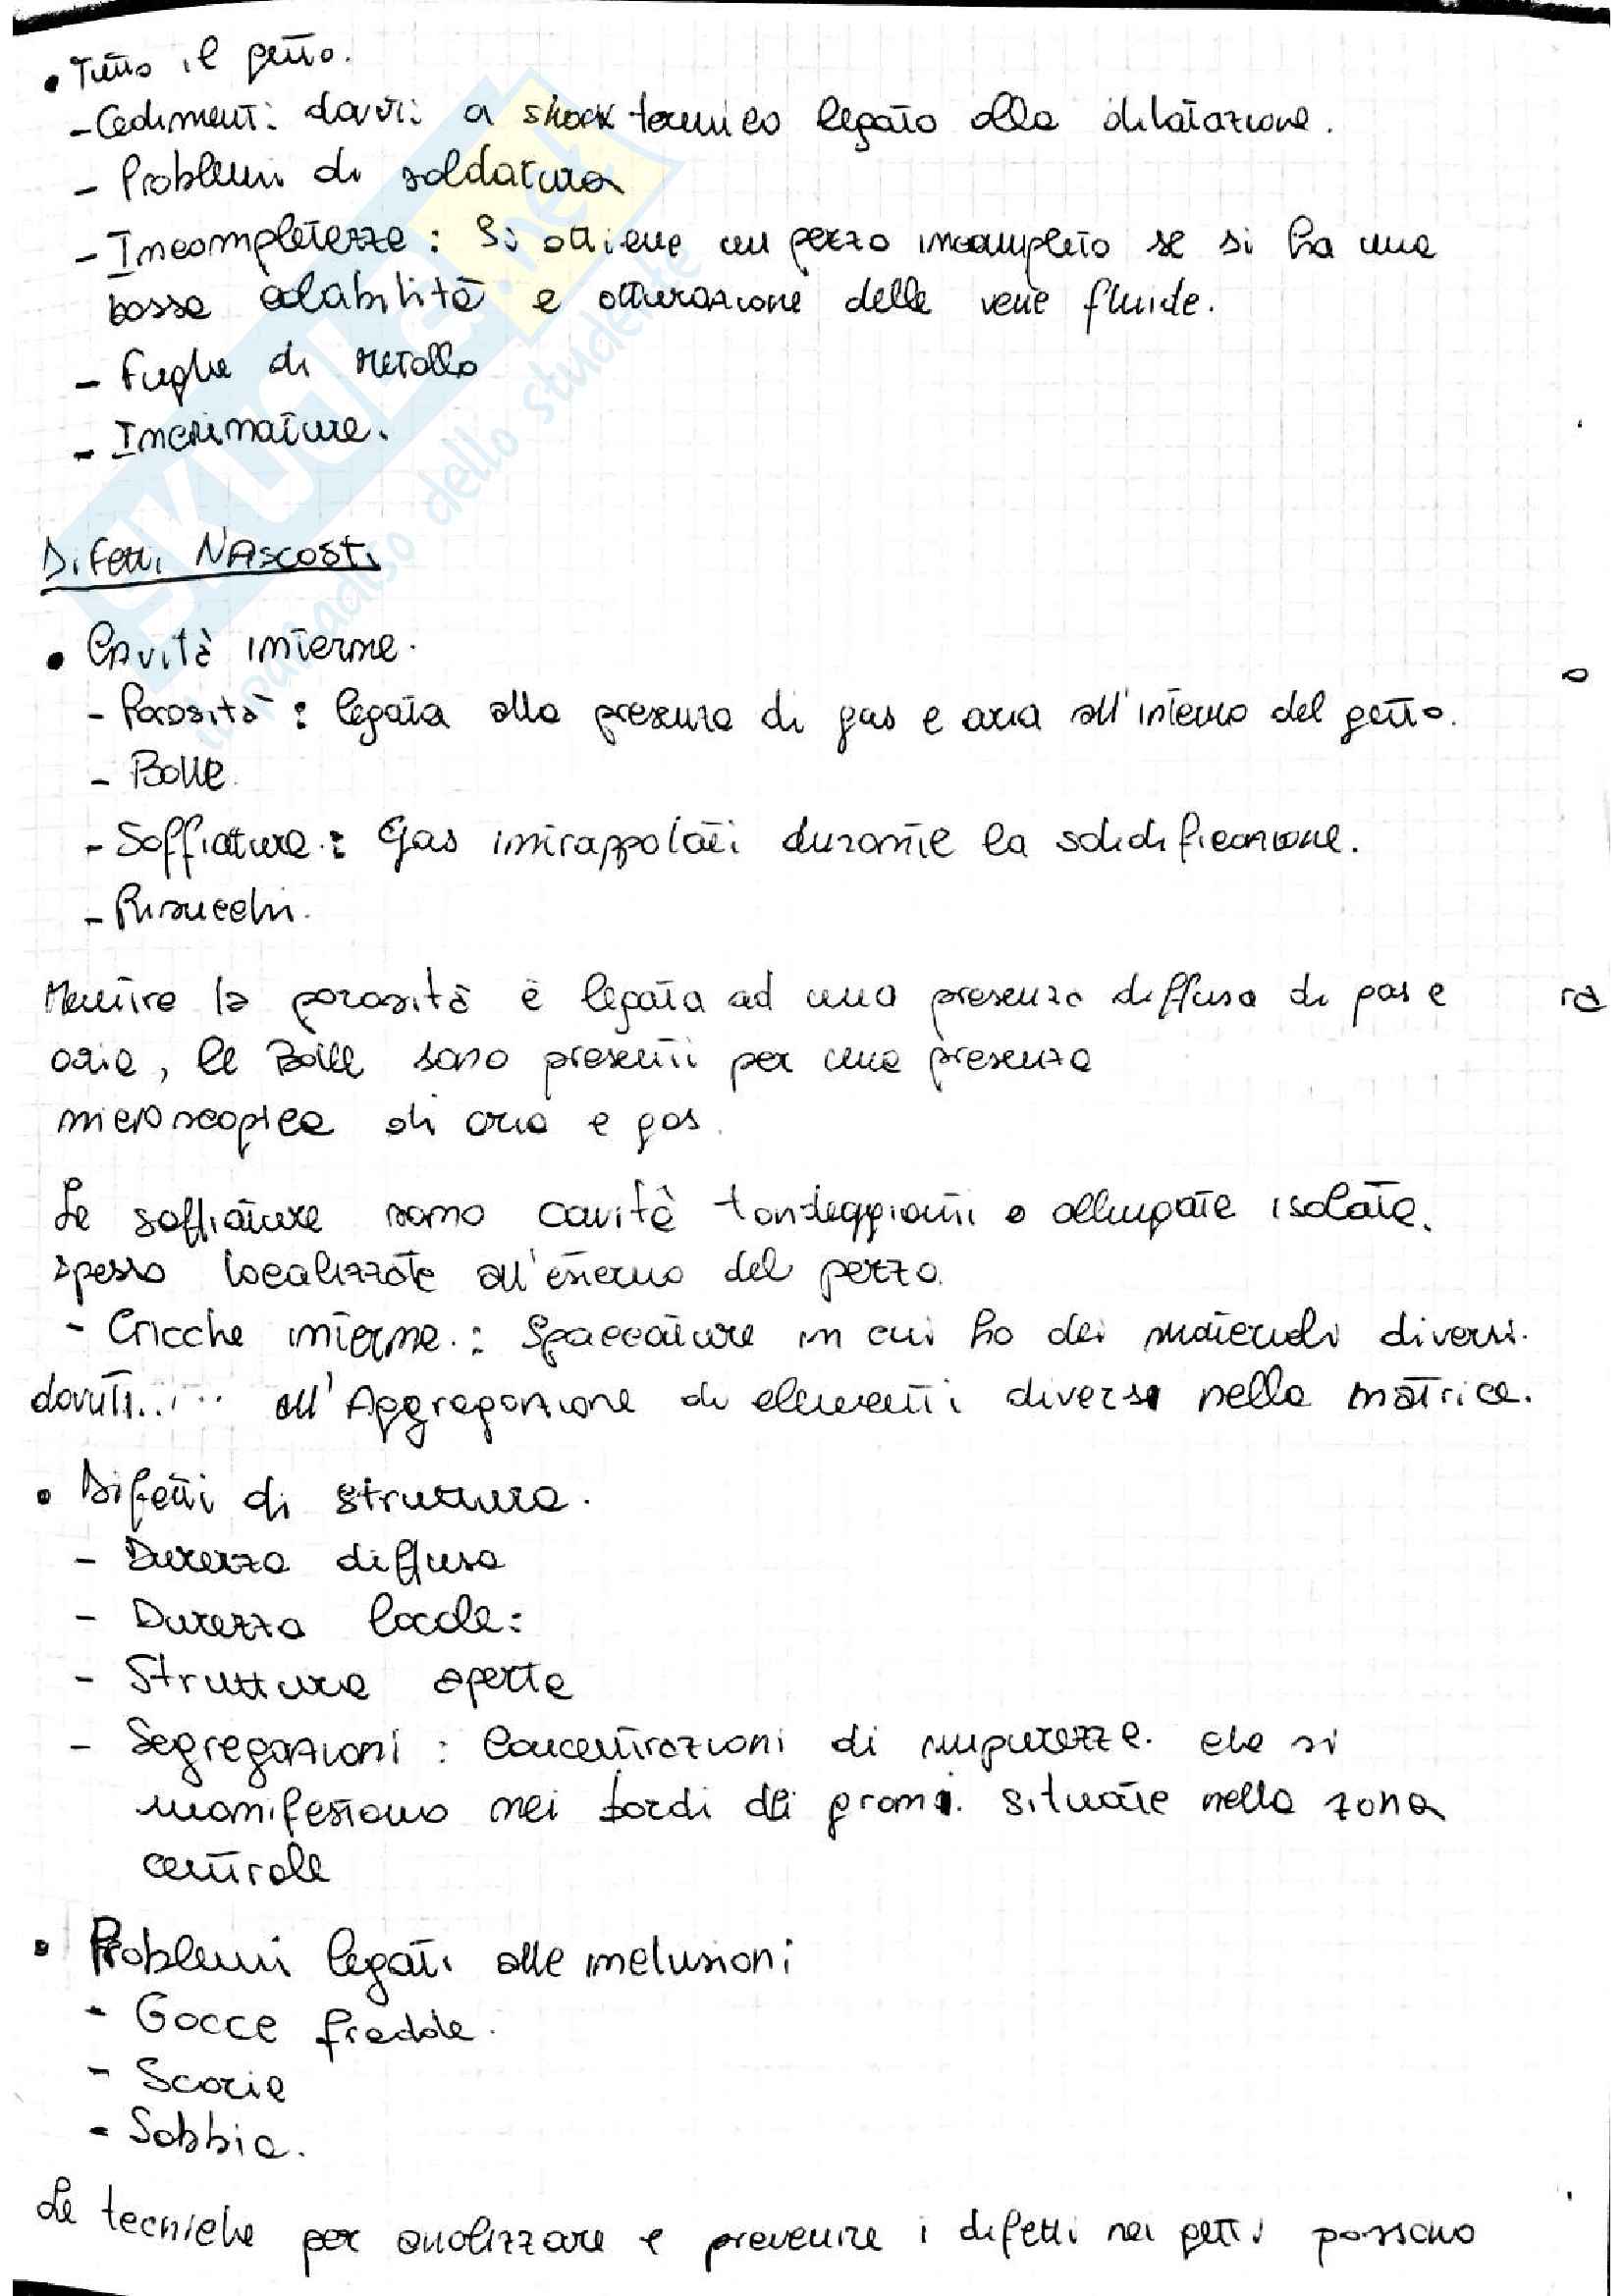 • Tutto il getto.
- Cedimenti dovuti a shock termico legato alla dilatazione.
- Problemi di saldatura
- Incompletezze : Si ottiene un pezzo incompleto se si ha una
bassa colabilità e otturazione delle vene fluide.
- Fughe di metallo
- Incrinature.
Difetti Nascosti
• Cavità interne.
- Porosità : legata alla presenza di gas e aria all'interno del getto.
- Bolle.
- Soffiature : Gas intrappolati durante la solidificazione.
- Risucchi.
Mentre la porosità è legata ad una presenza diffusa di gas e
aria, le Bolle sono presenti per una presenza
microscopica di aria e gas.
Le soffiature sono cavità tondeggianti o allungate isolate,
spesso localizzate all'esterno del pezzo.
- Cricche interne : Spaccature in cui ho dei materiali diversi.
dovuti..... all'Aggregazione di elementi diversi nella matrice.
• Difetti di struttura.
- Durezza diffusa
- Durezza locale:
- Struttura aperta
- Segregazioni : Concentrazioni di impurezze. che si
manifestano nei bordi dei grani. situate nella zona
centrale
• Problemi legati alle inclusioni
- Gocce fredde.
- Scorie
- Sabbia.
Le tecniche per analizzare e prevenire i difetti nei getti possono
SKUOLA.net
il paradiso dello studente